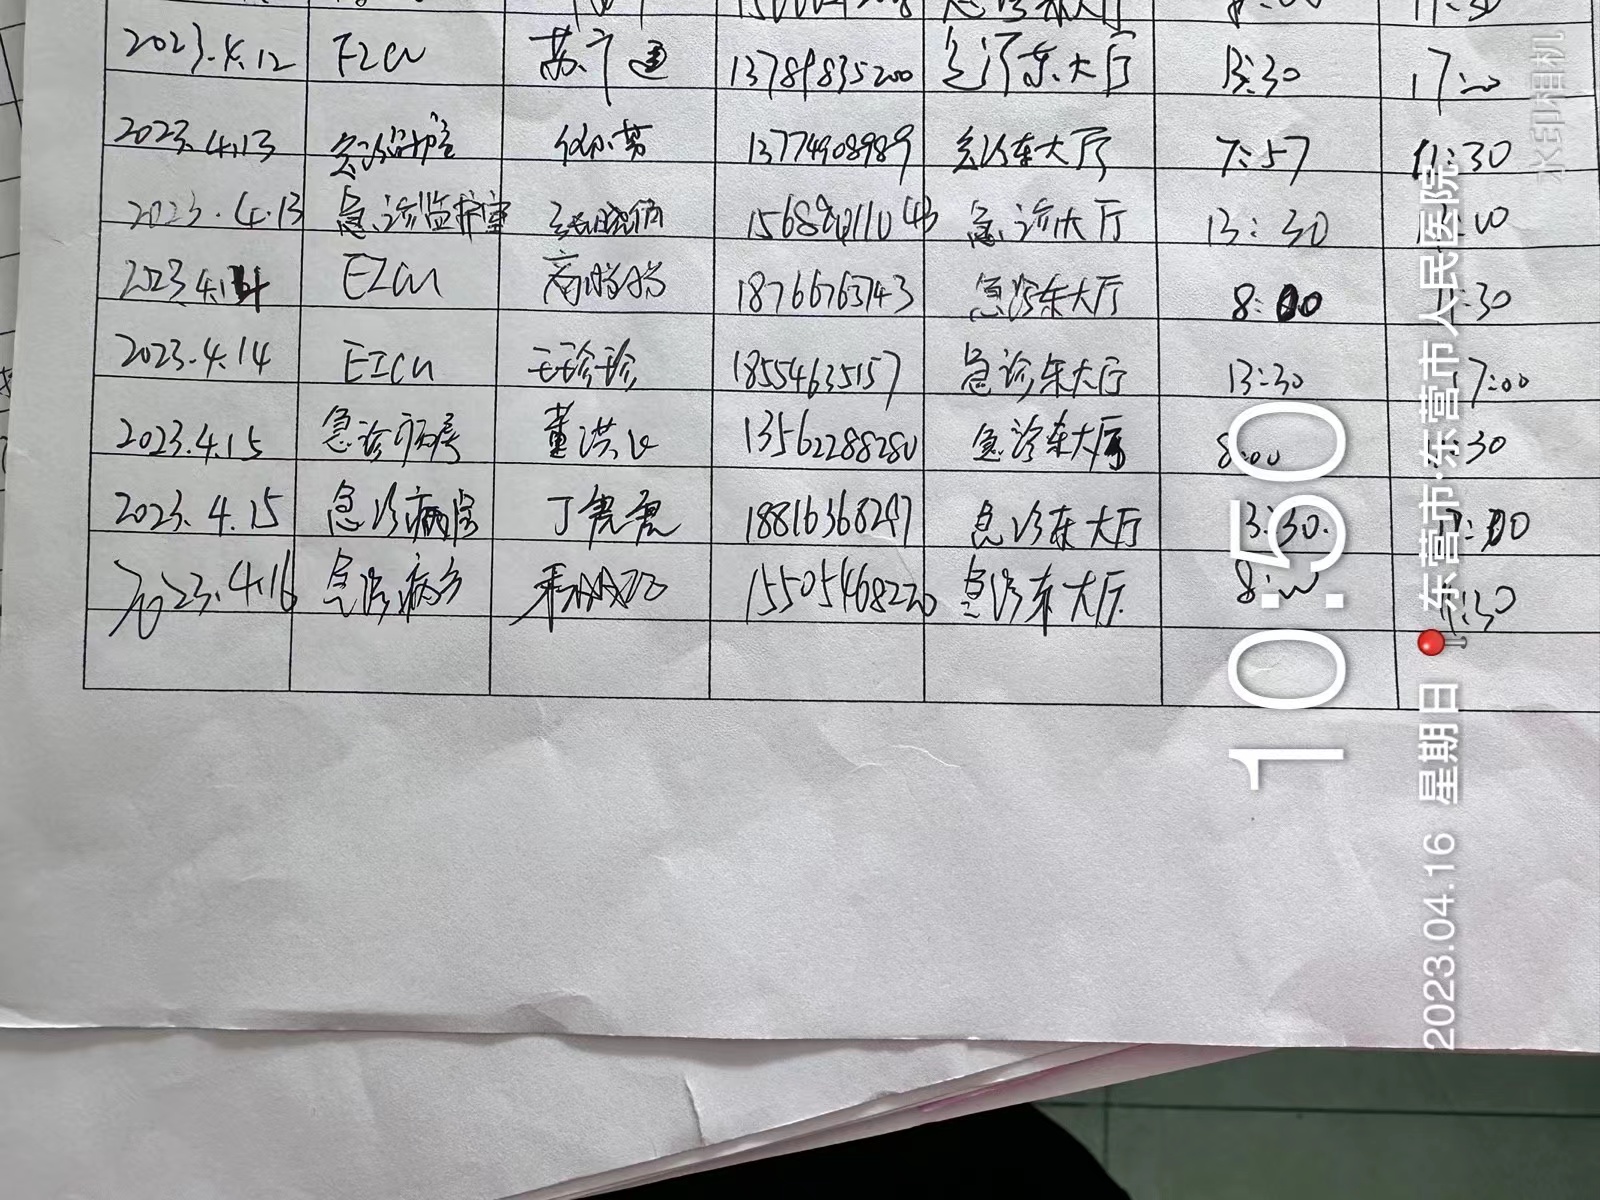 2023.4.12 EICU 苏 通 13789835200 急诊东大厅 13:30 17:00
2023.4.13 急诊监护室 13774908989 急诊东大厅 7:57 11:30
2023.4.13 急诊监护室 急诊大厅 13:30
2023.4.14 EICU 商 18766763743 急诊东大厅 8:00 :30
2023.4.14 EICU 王珍珍 18554635157 急诊东大厅 13:30 17:00
2023.4.15 急诊病房 董洪 13562288280 急诊东大厅 8:00 :30
2023.4.15 急诊病房 丁虎虎 18816368297 急诊东大厅 13:30
2023.4.16 急诊病房 15505468220 急诊东大厅 8:00 11:30
10:50
2023.04.16 星期日 东营市·东营市人民医院
水印相机